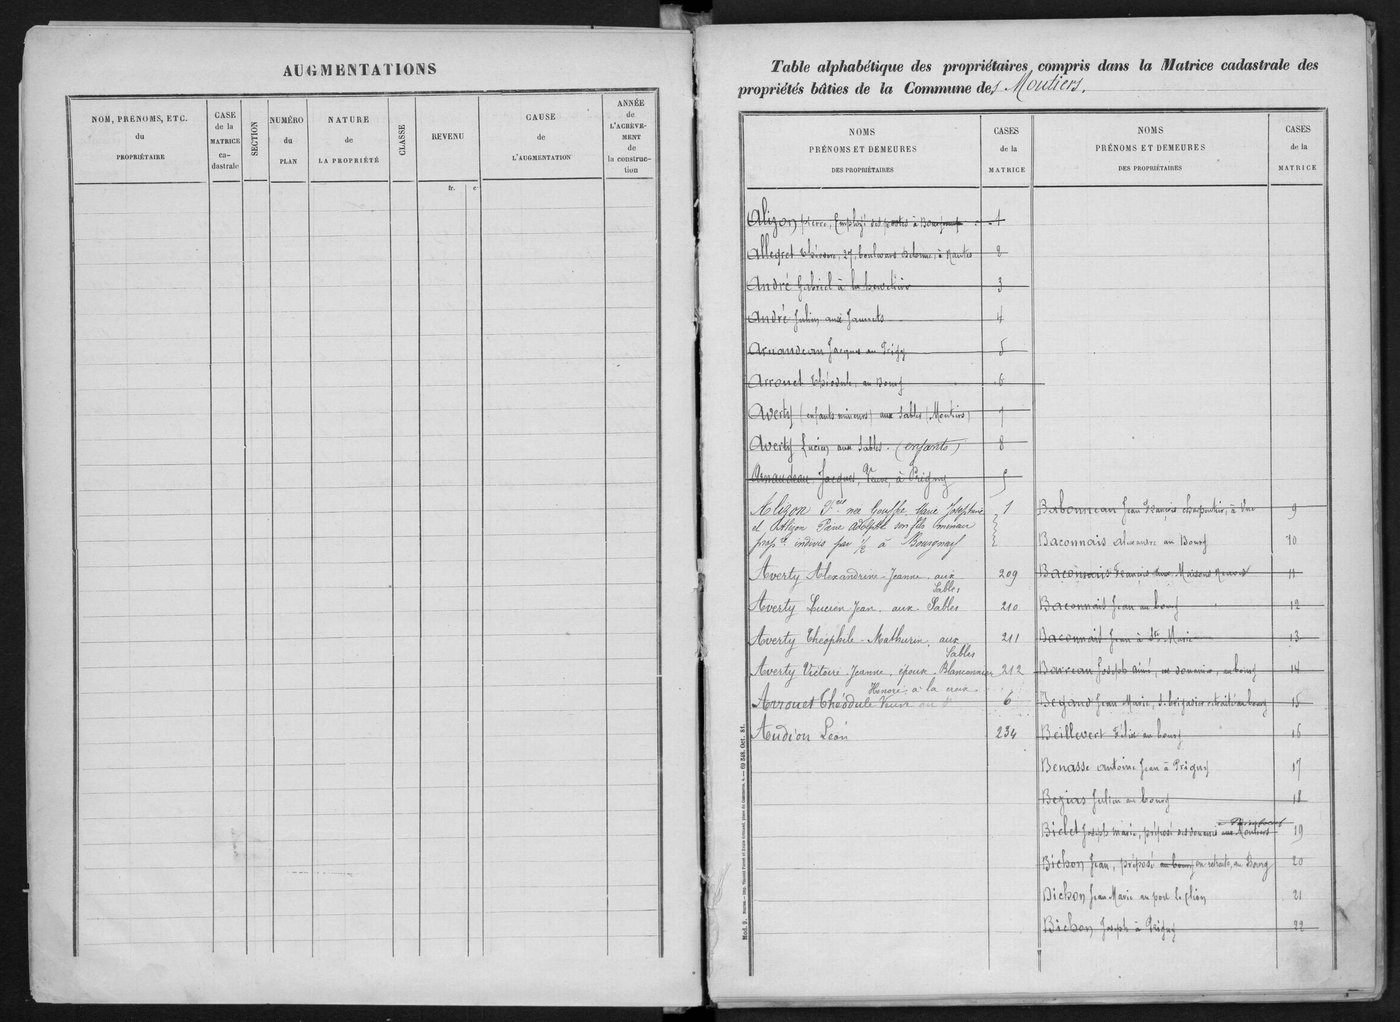 AUGMENTATIONS
NOM, PRÉNOMS, ETC.
du
PROPRIÉTAIRE
CASE
de la
MATRICE
ca-
dastrale
SECTION
NUMÉRO
du
PLAN
NATURE
de
LA PROPRIÉTÉ
CLASSE
REVENU
fr. c.
CAUSE
de
L'AUGMENTATION
ANNÉE
de
L'ACHÈVE-
MENT
de
la construc-
tion
Table alphabétique des propriétaires compris dans la Matrice cadastrale des
propriétés bâties de la Commune des Moutiers.
NOMS
PRÉNOMS ET DEMEURES
DES PROPRIÉTAIRES
CASES
de la
MATRICE
NOMS
PRÉNOMS ET DEMEURES
DES PROPRIÉTAIRES
CASES
de la
MATRICE
Alizon pierre, Employé des postes à 1
Allegret Théodore, 27, boulevard Delorme, à Nantes 2
André Gabriel à la 3
André Julien aux Jaunets 4
Arnaudeau Jacques au Prigny 5
Arrouet Théodule, au Bourg 6
Averty (enfants mineurs) aux Sables (Moutiers) 7
Averty Lucien aux Sables. (enfants) 8
Arnaudeau Jacques, Veuve, à Prigny 5
Alizon née Gouffé, Marie Joséphine 1
et Alizon Pierre Adolphe son fils mineur
propres indivis par 1/2 à Bourgneuf
Averty Alexandrine-Jeanne, aux Sables 209
Averty Lucien Jean, aux Sables 210
Averty Théophile-Mathurin, aux Sables 211
Averty Victoire Jeanne, épouse Blanconnier 212
Honoré, à la croix
Arrouet Théodule Veuve au 6
Audion Léon 234
Babonneau Jean François Charpentier, à Vue 9
Baconnais Alexandre au Bourg 10
Baconnais François aux Maisons Neuves 11
Baconnait Jean au bourg 12
Baconnait Jean à Ste Marie 13
Barreau Joseph Aimé, au bourg 14
Begaud Jean Marie, s. brigadier retraité au bourg 15
Beillevert Félix au bourg 16
Benasse Antoine Jean à Prigny 17
Bezias Julien au bourg 18
Bichet Joseph Marie, préposé des douanes aux Moutiers 19
Bichon Jean, préposé au bourg en retraite, au Bourg 20
Bichon Jean Marie au port le Clion 21
Bichon Joseph à Prigny 22